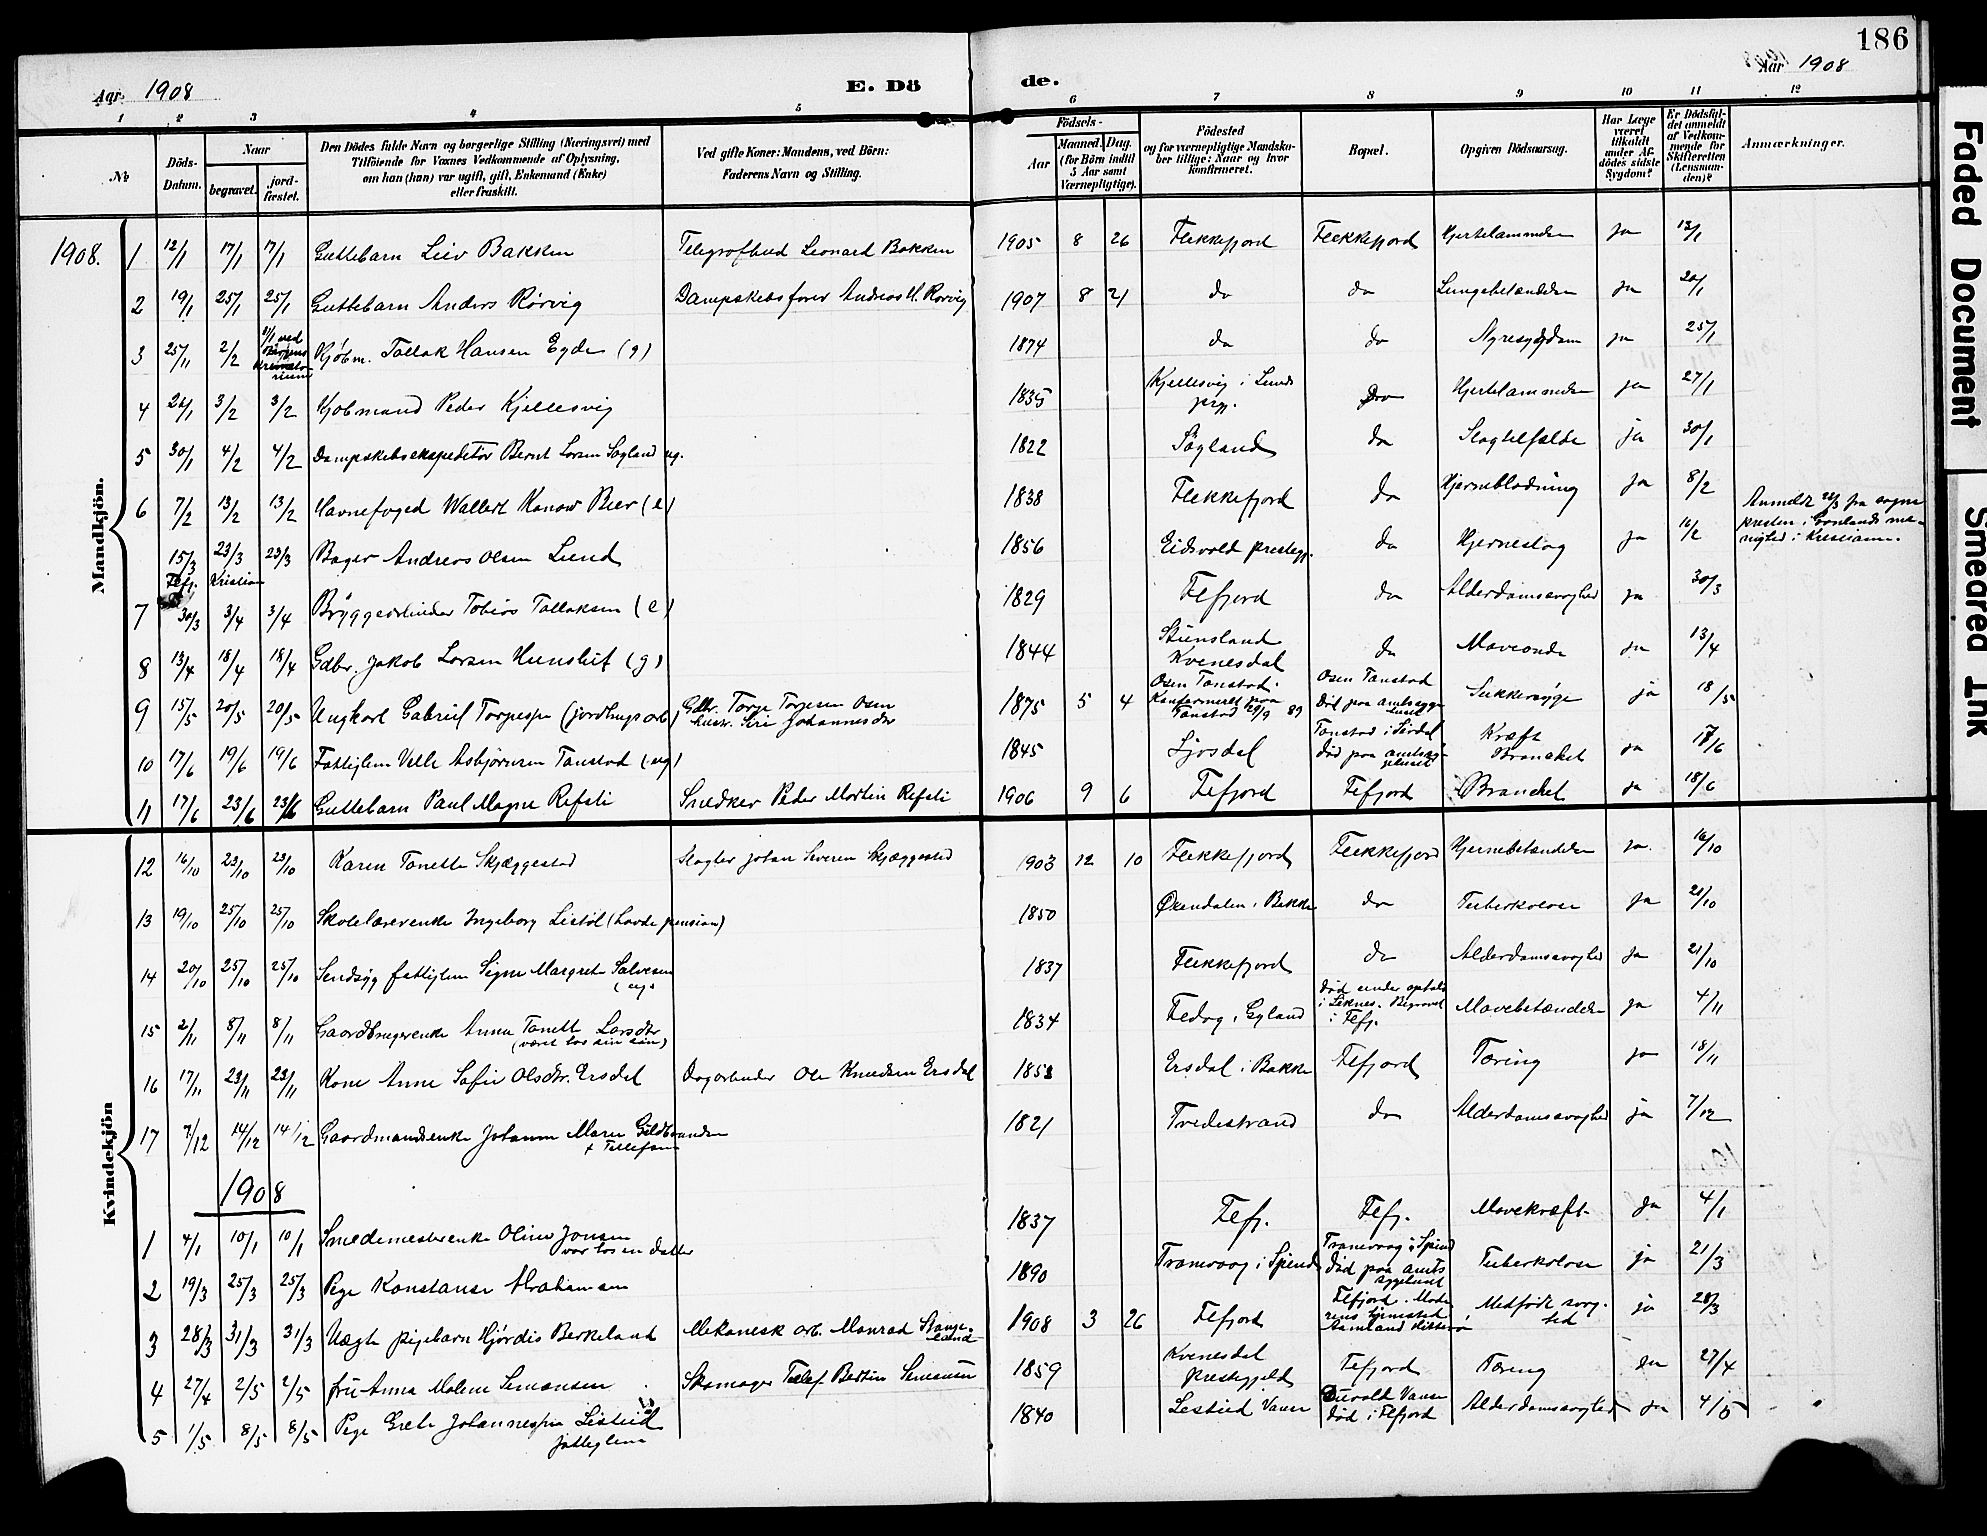 186
Aar 1908
E. Dö
de.
Aar 1908
1 2 3 4 5 6 7 8 9 10 11 12
№
Döds-Datum.
Naar
begravet.
jord-fæstet.
Den Dödes fulde Navn og borgerlige Stilling (Næringsvei) med
Tilföiende for Voxnes Vedkommende af Oplysning,
om han (hun) var ugift, gift, Enkemand (Enke)
eller fraskilt.
Ved gifte Koner: Mandens, ved Börn:
Faderens Navn og Stilling.
Födsels-
Aar
Maaned. Dag.
(for Börn indtil
5 Aar samt
Værnepligtige).
Födested
og for værnepligtige Mandska-
ber tillige: Naar og hvor
konfirmeret.
Bopæl.
Opgiven Dödsaarsag.
Har Læge
været
tilkaldt
under Af-
dödes sidste
Sygdom?
Er Dödsfal-
det anmeldt
af Vedkom-
mende for
Skifteretten
(Lensman-
den)?
Anmærkninger.
Mandkjön.
1908. 1 12/1 17/1 17/1 Guttebarn Leiv Bakken Telegrafbud Leonard Bakken 1905 8 26 Flekkefjord Flekkefjord Hjertelammelse ja 13/1
2 19/1 25/1 25/1 Guttebarn Anders Rörvig Dampskibsfører Andreas H. Rørvig 1907 8 21 do do Lungebetændelse ja 20/1
3 25/1 2/2 31/1 ved Bergens Krematorium Kjöbm. Tallak Hansen Eyde (g) 1874 do do Nyresygdom ja 25/1
4 3/2 3/2 Kjöbmand Peder Kjellesvig 1835 Kjellesvig i Lunds prgj. do Hjertelammelse ja 27/1
5 30/1 4/2 4/2 Dampskibsekspeditør Bernt Larsen Søgland ug. 1822 Søgland do Slagtilfælde ja 30/1
6 7/2 13/2 13/2 Havnefoged Wallert Konow Beer (e) 1838 Flekkefjord do Hjerneblødning ja 8/2
15/3 Fefj. 23/3 Kristian 23/3 Bager Andreas Olsen Lund 1856 Eidsvold prestegj. do Hjerneslag ja 16/2
Anmeldt 22/3 fra sogne
presten i Grønlands me-
nighed i Kristiania.
7 30/3 3/4 3/4 Bryggearbeider Tobias Tallaksen (e) 1829 Fefjord do Alderdomssvaghed ja 30/3
8 13/4 18/4 18/4 Gdbr. Jakob Larsen (g) 1844 Stunsland Kvinesdal do Maveonde ja 13/4
9 15/5 20/5 20/5 Ungkarl Gabriel Torgessøn (jordbrugsarb.) Gdbr. Torge Torgesen Osen hustr. Siri Johannesdtr 1875 5 4 Osen Tonstad. Konfirmeret fra Tonstad 29/9 89 Osen Tonstad död paa amtssygehuset Sukkersyge ja 18/5
10 17/6 19/6 19/6 Fattiglem Velle Asbjørnsen Tonstad (ug) 1845 Ljosdal Tonstad i Sirdal död paa amtssygehuset Kræft Brandet ja 17/6
11 17/6 23/6 23/6 Guttebarn Paul Magne Refsti Snedker Peder Martin Refsti 1906 9 6 Fefjord Fefjord Brandet ja 18/6
Kvindekjön
12 16/10 23/10 23/10 Karen Tonette Skjæggestad Slagter Johan Severin Skjæggestad 1903 12 10 Flekkefjord Flekkefjord Hjernebetændelse ja 16/10
13 19/10 25/10 25/10 Skolelærerenke Ingeborg Listøl (havde pension) 1850 Øxendalen i Bakke do Tuberkolose ja 21/10
14 20/10 25/10 25/10 Sindsyg fattiglem Signe Margrethe Salvesen (ug) 1837 Flekkefjord do Alderdomssvaghed ja 21/10
15 2/11 8/11 8/11 Gaardbrugerenke Anna Tonette Larsdtr (været hos sin søn) 1834 Fedog i Gyland död under ophold i Liknes. Begravet i Fefj. Mavebetændelse ja 4/11
16 17/11 23/11 23/11 Kone Anne Sofie Olsdtr. Ersdal Dagarbeider Ole Knudsen Ersdal 1853 Ersdal i Bakke Fefjord Tæring ja 18/11
17 7/12 14/12 14/12 Gaardmandsenke Johanne Marie Gildbrandsen + Tellefsen 1821 Tvedestrand do Alderdomssvaghed ja 7/12
1908
1 4/1 10/1 10/1 Smedemesterenke Oline Jonsen var hos en datter 1837 Fefj. Fefj. Mavekræft ja 4/1
2 19/3 25/3 25/3 Pige Konstanse Abrahamsen 1890 Tranevaag i Spind Tranevaag i Spind död paa amtssygehuset Tuberkolose ja 21/3
3 28/3 31/3 31/3 Uægte pigebarn Hjördis Berkeland Mekanisk arb. Monrad Stangeland 1908 3 26 Fefjord Fefjord. Moderens hjemsted Aamland Hitterø Medfödt svaghed ja 28/3
4 27/4 2/5 2/5 fru Anna Malene Simonsen Skomager Tellef Bertin Simonsen 1859 Kvinesdal Prestegjeld Fefjord Tæring ja 27/4
5 1/5 8/5 8/5 Pige Grete Johannesen Listeid fattiglem 1840 Lesteid Vanse död i Flefjord Alderdomssvaghed ja 4/5
Faded Document
Smeared Ink